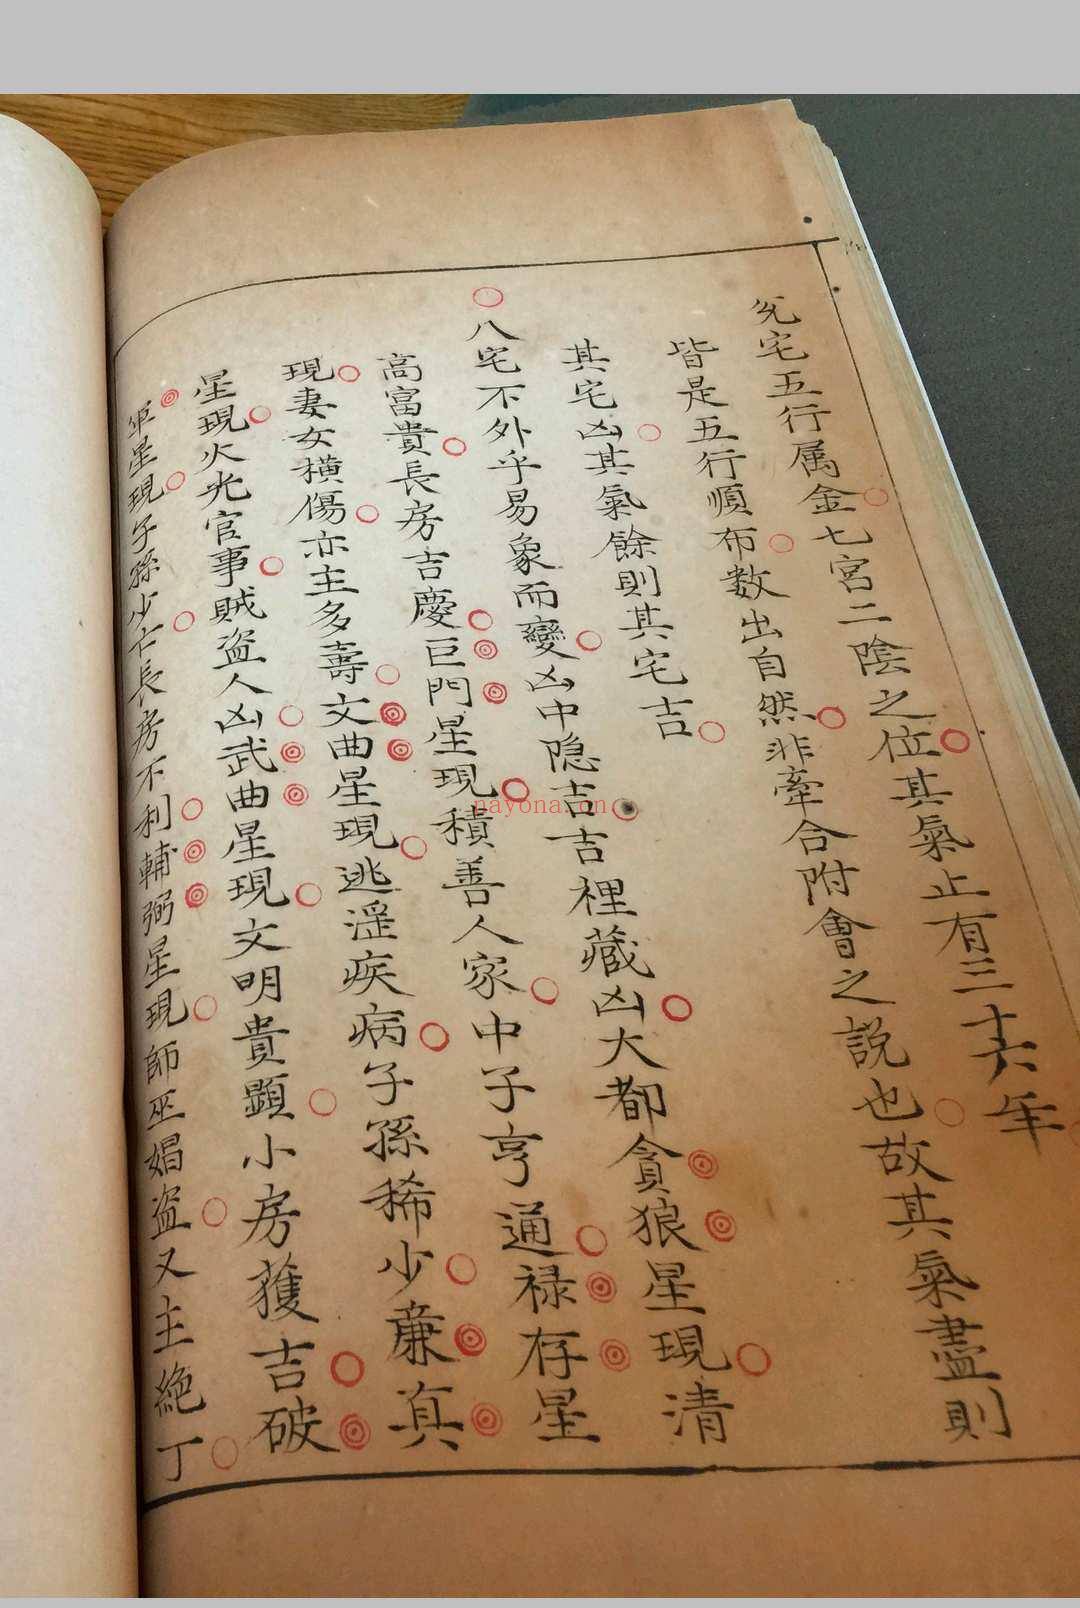 兌宅五行属金七宮二陰之位其氣止有三十六年
皆是五行順布数出自然非牽合附會之説也故其氣盡則
其宅凶其氣餘則其宅吉
八宅不外乎易象而變凶中隐吉吉裡藏凶大都貪狼星現清
高富貴長房吉慶巨門星現積善人家中子亨通禄存星
現妻女横傷亦主多壽文曲星現逃淫疾病子孫稀少廉真
星現火光官事賊盗人凶武曲星現文明貴顕小房獲吉破
軍星現子孫少亡長房不利輔弼星現師巫娼盗又主絶丁
nayona.cn